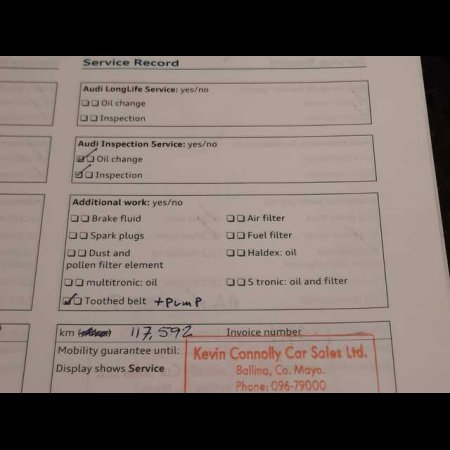 Service Record
Audi LongLife Service: yes/no
Oil change
Inspection
Audi Inspection Service: yes/no
Oil change
Inspection
Additional work: yes/no
Brake fluid
Air filter
Spark plugs
Fuel filter
Dust and
pollen filter element
Haldex: oil
multitronic: oil
S tronic: oil and filter
Toothed belt + PUMP
km 117,592 Invoice number
Mobility guarantee until:
Display shows Service
Kevin Connolly Car Sales Ltd.
Ballina, Co. Mayo.
Phone: 096-79000